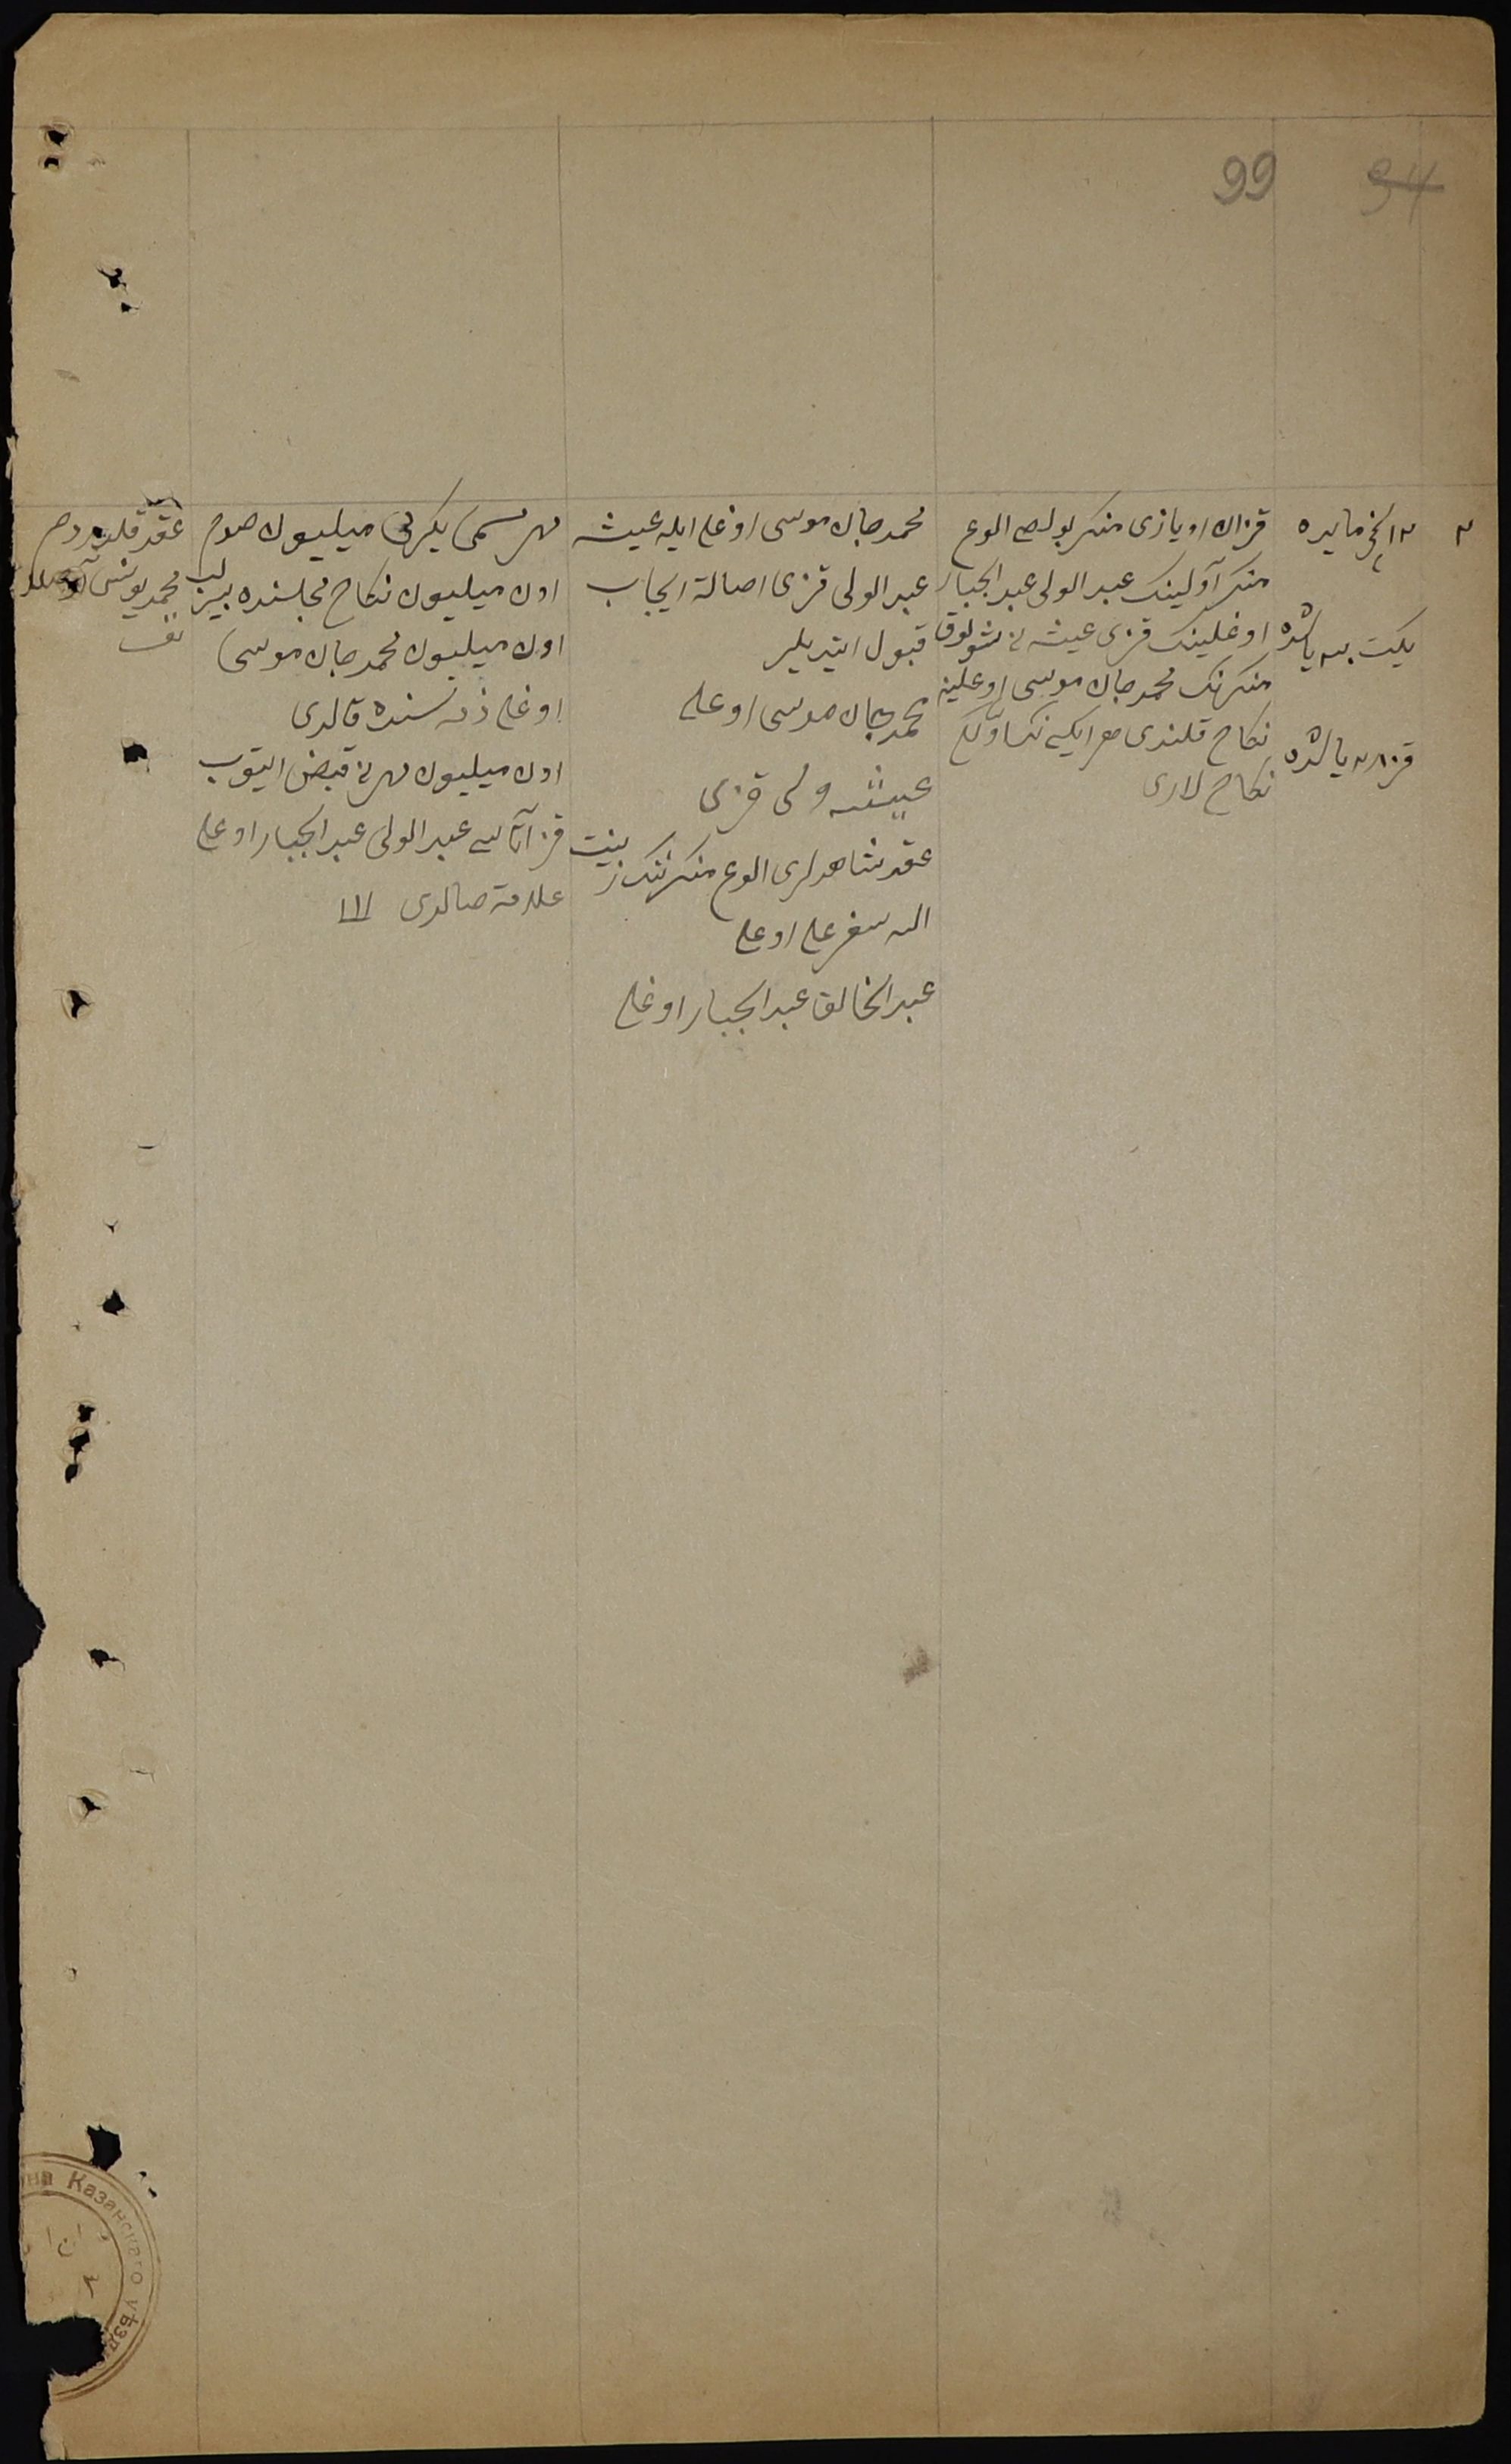 99 94
٣
١٣ نچی مايده
يكت ٢٣ ياشده
قز ٢٨ ياشده
قزان اويازی منكر بولصی الوع
منكر آولينك عبدالولی عبدالجبار
اوغلينك قزی عيشه نی شولوق
منكرنك محمدجان موسی اوغلينه
نكاح قلندی هر ايكيسينك اولگی
نكاح لاری
محمدجان موسی اوغلی ايله عيشه
عبدالولی قزی اصالة ايجاب
قبول ايتديلر
محمدجان موسی اوغلی
عيشه ولی قزی
عقد شاهدلری الوع منكرنك
سفرعلی اوغلی
عبدالخالق عبدالجبار اوغلی
مهر مسمی يكرمی ميليون صوم
اون ميليون نكاح مجلسنده بيرلب
اون ميليون محمدجان موسی
اوغلی ذمه سنده قالدی
اون ميليون مهر نی قبض ايتوب
قز آتاسی عبدالولی عبدالجبار اوغلی
علامة صالدی ااا
عقد قلدردم
محمد يونس
Казанскаго уѣзд